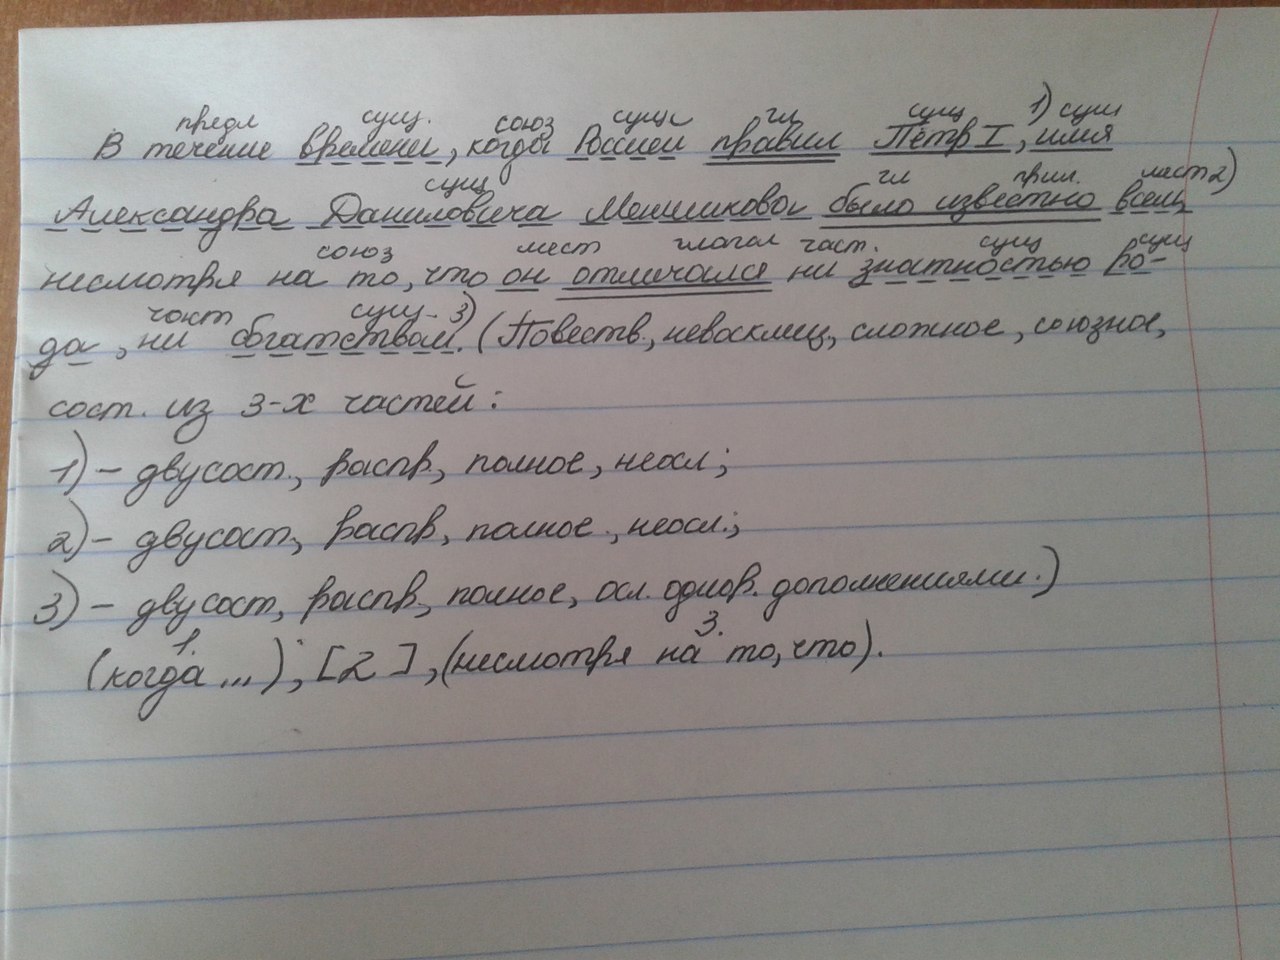 предл сущ. союз сущ гл сущ 1) сущ
В течение времени, когда Россией правил Пётр I, имя
сущ гл прил. мест 2)
Александра Даниловича Меншикова было известно всем,
союз мест глагол част. сущ сущ
несмотря на то, что он отличался ни знатностью ро-
част сущ. 3)
да, ни богатством. (Повеств., невосклиц, сложное, союзное,
сост. из 3-х частей:
1) – двусост., распр., полное, неосл;
2) – двусост, распр, полное, неосл.;
3) – двусост, распр, полное, осл. однор. дополнениями.)
1. 3.
(когда ...), [2], (несмотря на то, что).